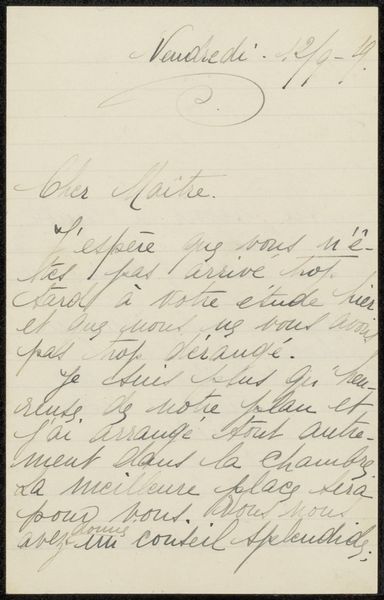 Vendredi. 12/9-19.
Cher Maître.
J'espère que vous n'ê-
tes pas arrivé trop
tard à votre étude hier
et que nous ne vous avons
pas trop dérangé.
Je suis plus qu'heu-
reuse de notre plan et
j'ai arrangé tout autre-
ment dans la chambre.
La meilleure place sera
pour vous. Vous nous
avez donné un conseil splendide,